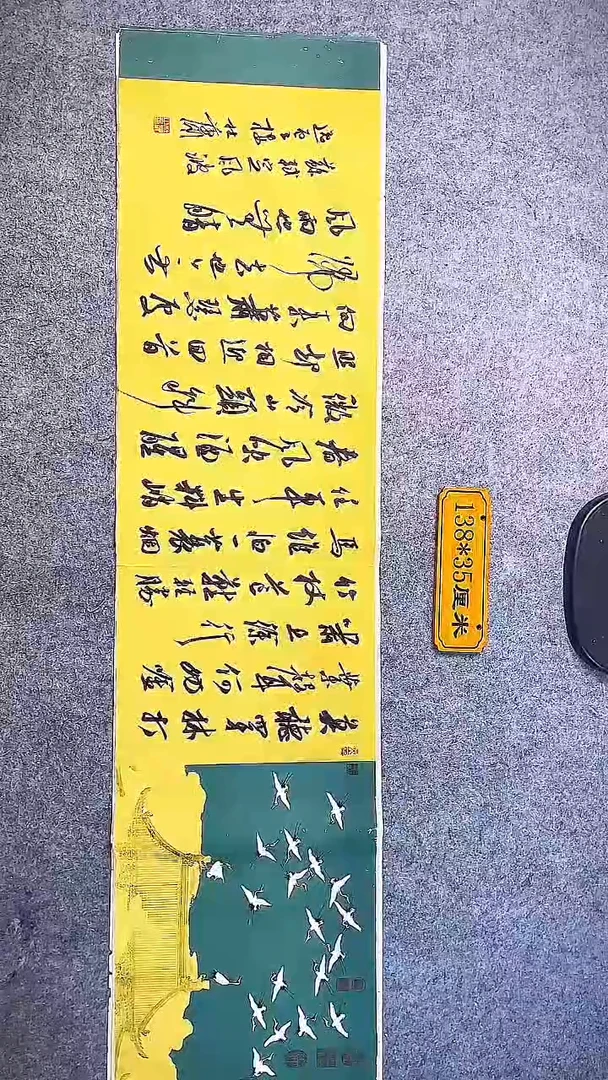 莫听穿林打
叶声何妨吟
啸且徐行
竹杖芒鞋轻胜
马谁怕一蓑烟
任平生料峭
春风吹酒醒
微冷山头斜
照却相迎回首
向来萧瑟处
归去也无
风雨也无晴
苏轼定风波
138*35厘米